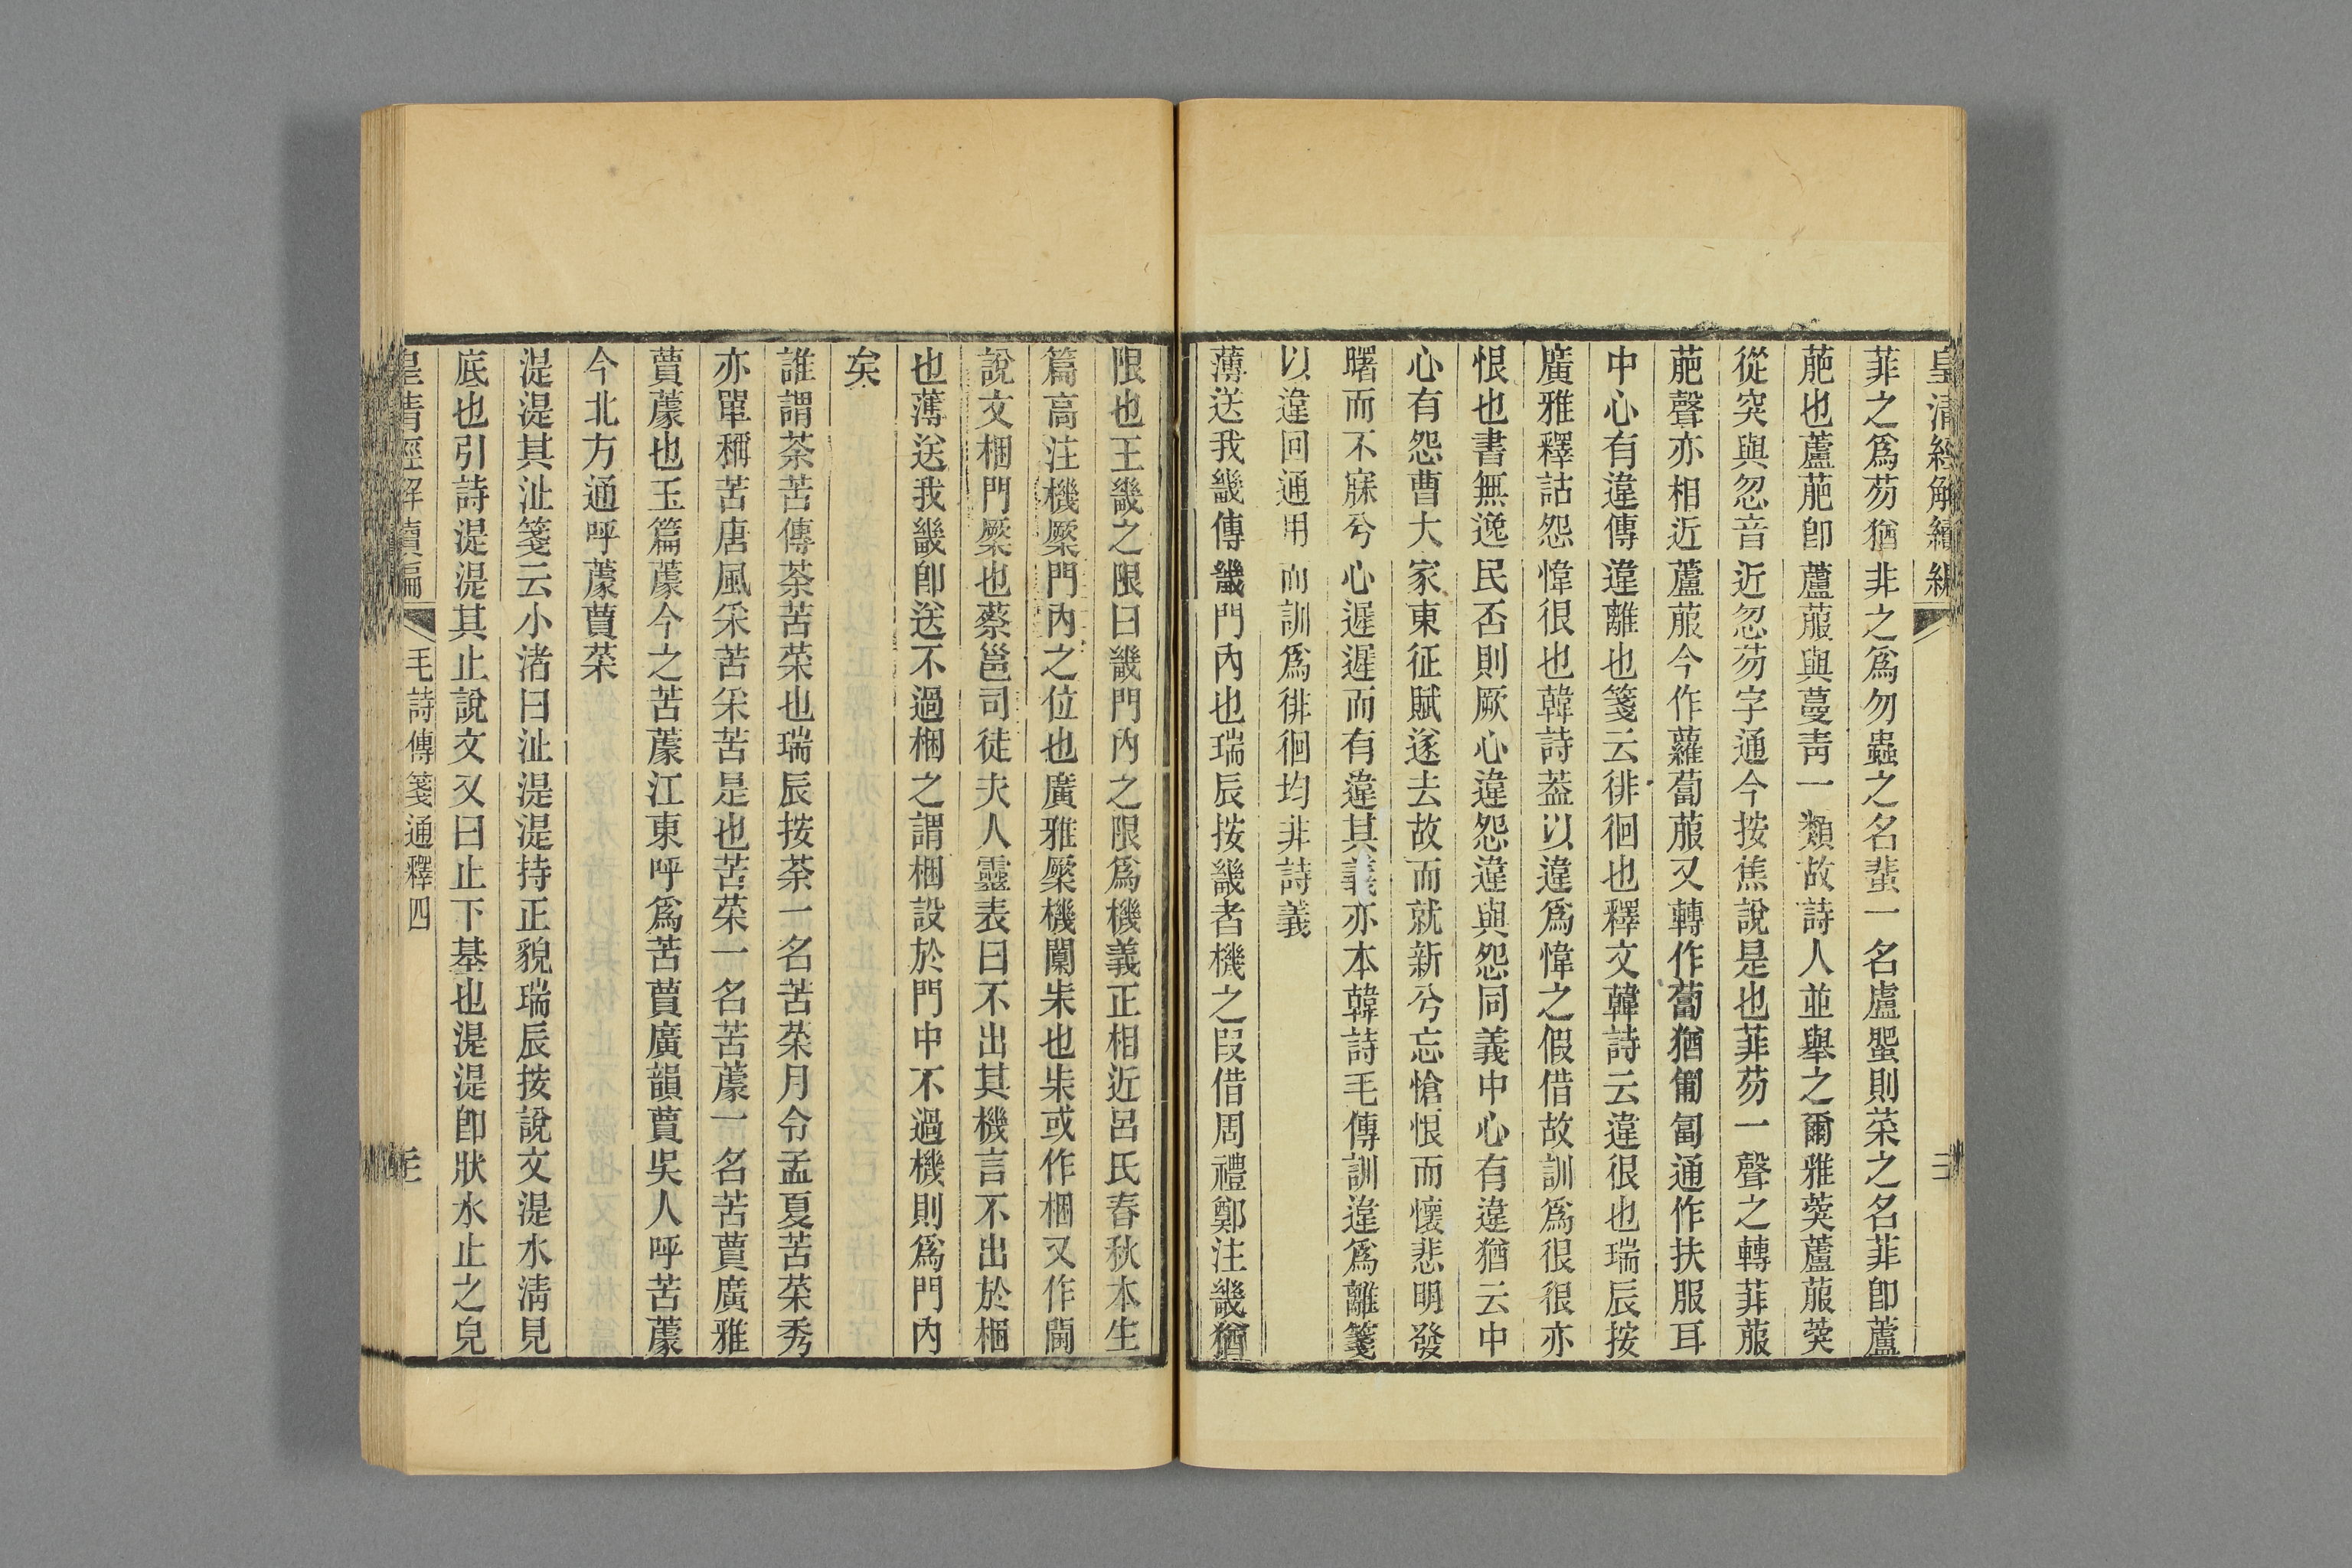 皇清經解續編
菲之爲芴猶非之爲勿蟲之名蜚一名盧蜰則菜之名菲卽蘆
萉也蘆萉卽蘆菔與蔓靑一類故詩人並舉之爾雅葖蘆菔葖
從突與忽音近忽芴字通今按焦說是也菲芴一聲之轉菲菔
萉聲亦相近蘆菔今作蘿蔔菔又轉作蔔猶匍匐通作扶服耳
中心有違傳違離也箋云徘徊也釋文韓詩云違很也瑞辰按
廣雅釋詁怨愇很也韓詩葢以違爲愇之假借故訓爲很很亦
恨也書無逸民否則厥心違怨違與怨同義中心有違猶云中
心有怨曹大家東征賦遂去故而就新兮忘愴恨而懷悲明發
曙而不寐兮心遲遲而有違其義亦本韓詩毛傳訓違爲離箋
以違回通用而訓爲徘徊均非詩義
薄送我畿傳畿門內也瑞辰按畿者機之叚借周禮鄭注畿猶
限也王畿之限曰畿門內之限爲機義正相近呂氏春秋本生
篇高注機橜門內之位也廣雅橜機闑朱也朱或作梱又作閫
說文梱門橜也蔡邕司徒夫人靈表曰不出其機言不出於梱
也薄送我畿卽送不過梱之謂梱設於門中不過機則爲門內
矣
誰謂荼苦傳荼苦菜也瑞辰按荼一名苦菜月令孟夏苦菜秀
亦單稱苦唐風采苦采苦是也苦菜一名苦蕒一名苦蕒廣雅
蕒蘪也玉篇蘪今之苦蘪江東呼爲苦蕒廣韻蕒吳人呼苦蘪
今北方通呼蘪蕒菜
湜湜其沚箋云小渚曰沚湜湜持正貌瑞辰按說文湜水淸見
底也引詩湜湜其止說文又曰止下基也湜湜卽狀水止之皃
皇清經解續編 毛詩傳箋通釋四